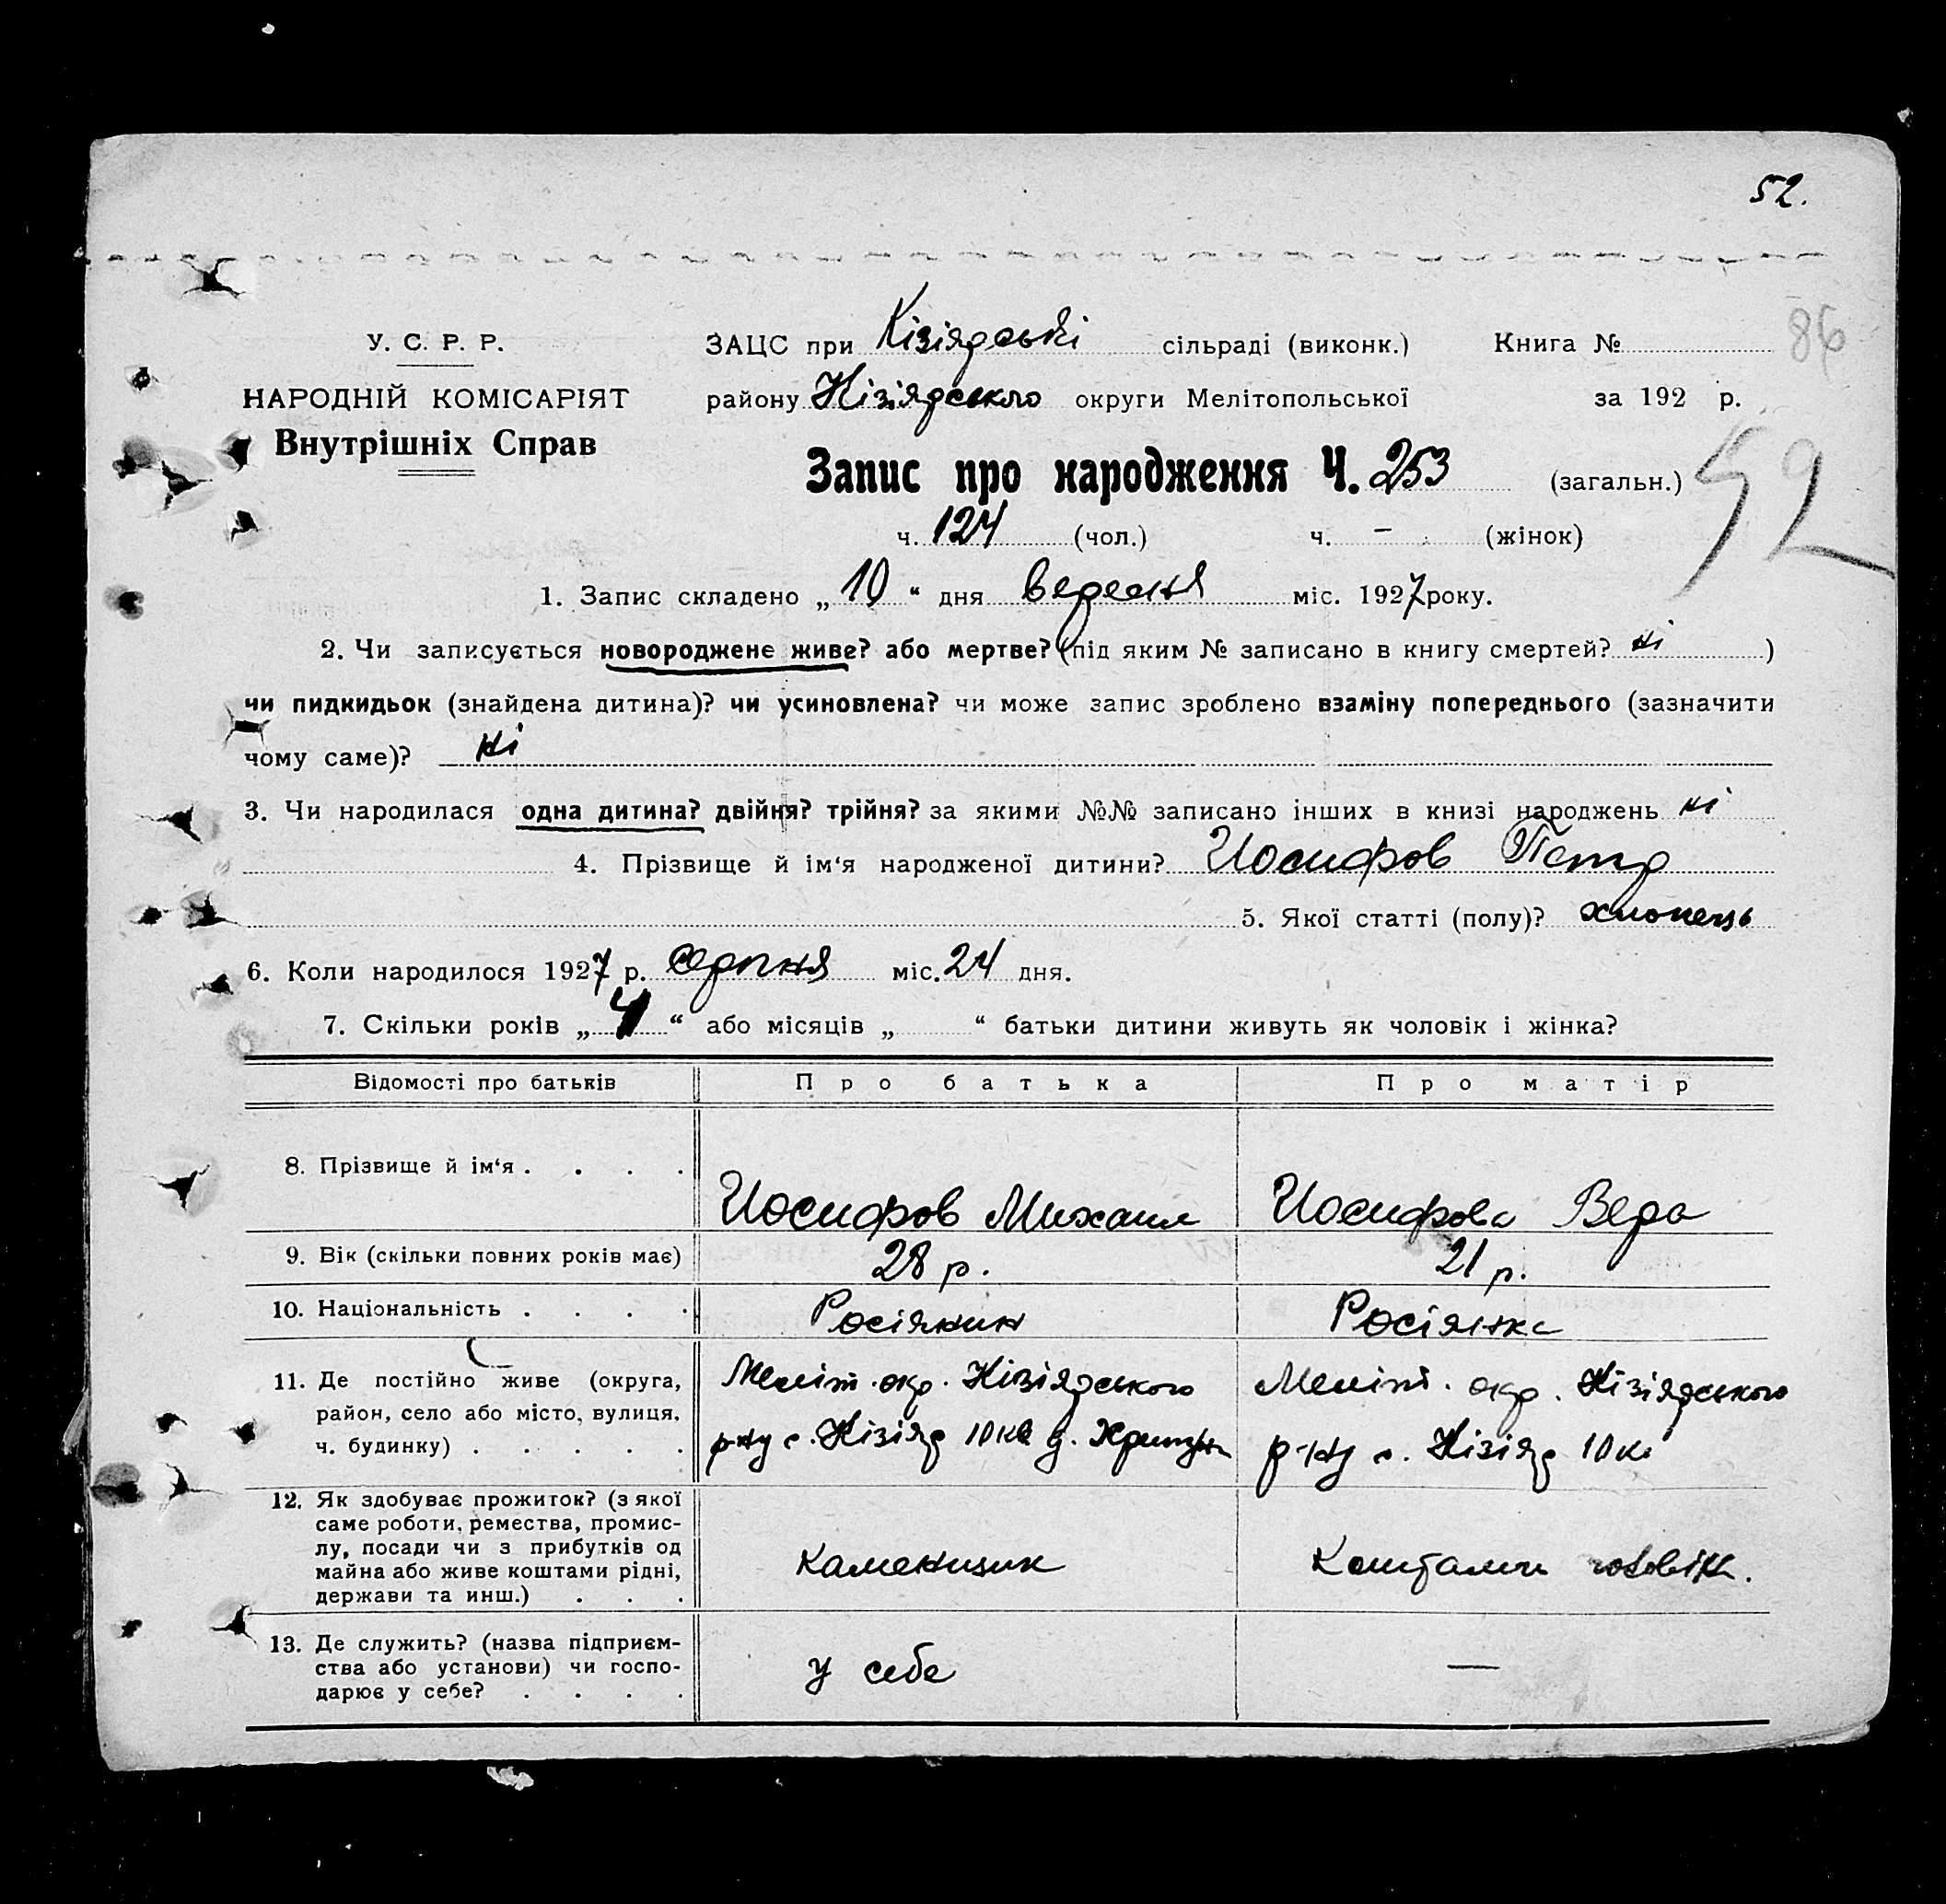 52.
У. С. Р. Р.
НАРОДНІЙ КОМІСАРІЯТ
Внутрішніх Справ
ЗАЦС при Кізіядські сільраді (виконк.) Книга № 86
району Кізіядського округи Мелітопольської за 192 р.
Запис про народження Ч. 253 (загальн.) 52
ч. 124 (чол.) ч. - (жінок)
1. Запис складено „ 10 “ дня вересня міс. 1927 року.
2. Чи записується новороджене живе? або мертве? (під яким № записано в книгу смертей? ні )
чи пидкидьок (знайдена дитина)? чи усиновлена? чи може запис зроблено взаміну попереднього (зазначити
чому саме)? ні
3. Чи народилася одна дитина? двійня? трійня? за якими №№ записано інших в книзі народжень ні
4. Прізвище й ім‘я народженої дитини? Иосифов Петр
5. Якої статті (полу)? хлопець
6. Коли народилося 1927 р. серпня міс. 24 дня.
7. Скільки років „ 4 “ або місяців „ “ батьки дитини живуть як чоловік і жінка?
Відомості про батьків Про батька Про матір
8. Прізвище й ім‘я . . . . Иосифов Михаил Иосифова Вера
9. Вік (скільки повних років має) 28 р. 21 р.
10. Національність . . . . Росіянин Росіянка
11. Де постійно живе (округа,
район, село або місто, вулиця,
ч. будинку) . . . . .
Меліт. окр. Кізіядського
р-ну с. Кізіяд 10 кв
Меліт. окр. Кізіядського
р-ну с. Кізіяд 10 кв
12. Як здобуває прожиток? (з якої
саме роботи, ремества, промис-
лу, посади чи з прибутків од
майна або живе коштами рідні,
держави та инш.) . . .
каменщик
Коштами чоловіка.
13. Де служить? (назва підприєм-
ства або установи) чи госпо-
дарює у себе? . . . .
у себе
—